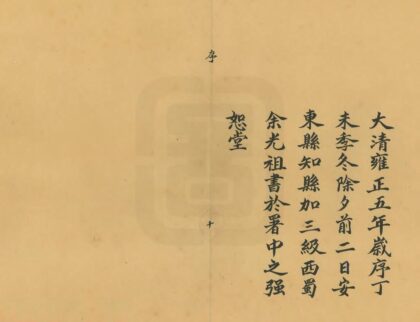 大清雍正五年歲序丁
未季冬除夕前二日安
東縣知縣加三級西蜀
余光祖書於署中之强
恕堂
序
十